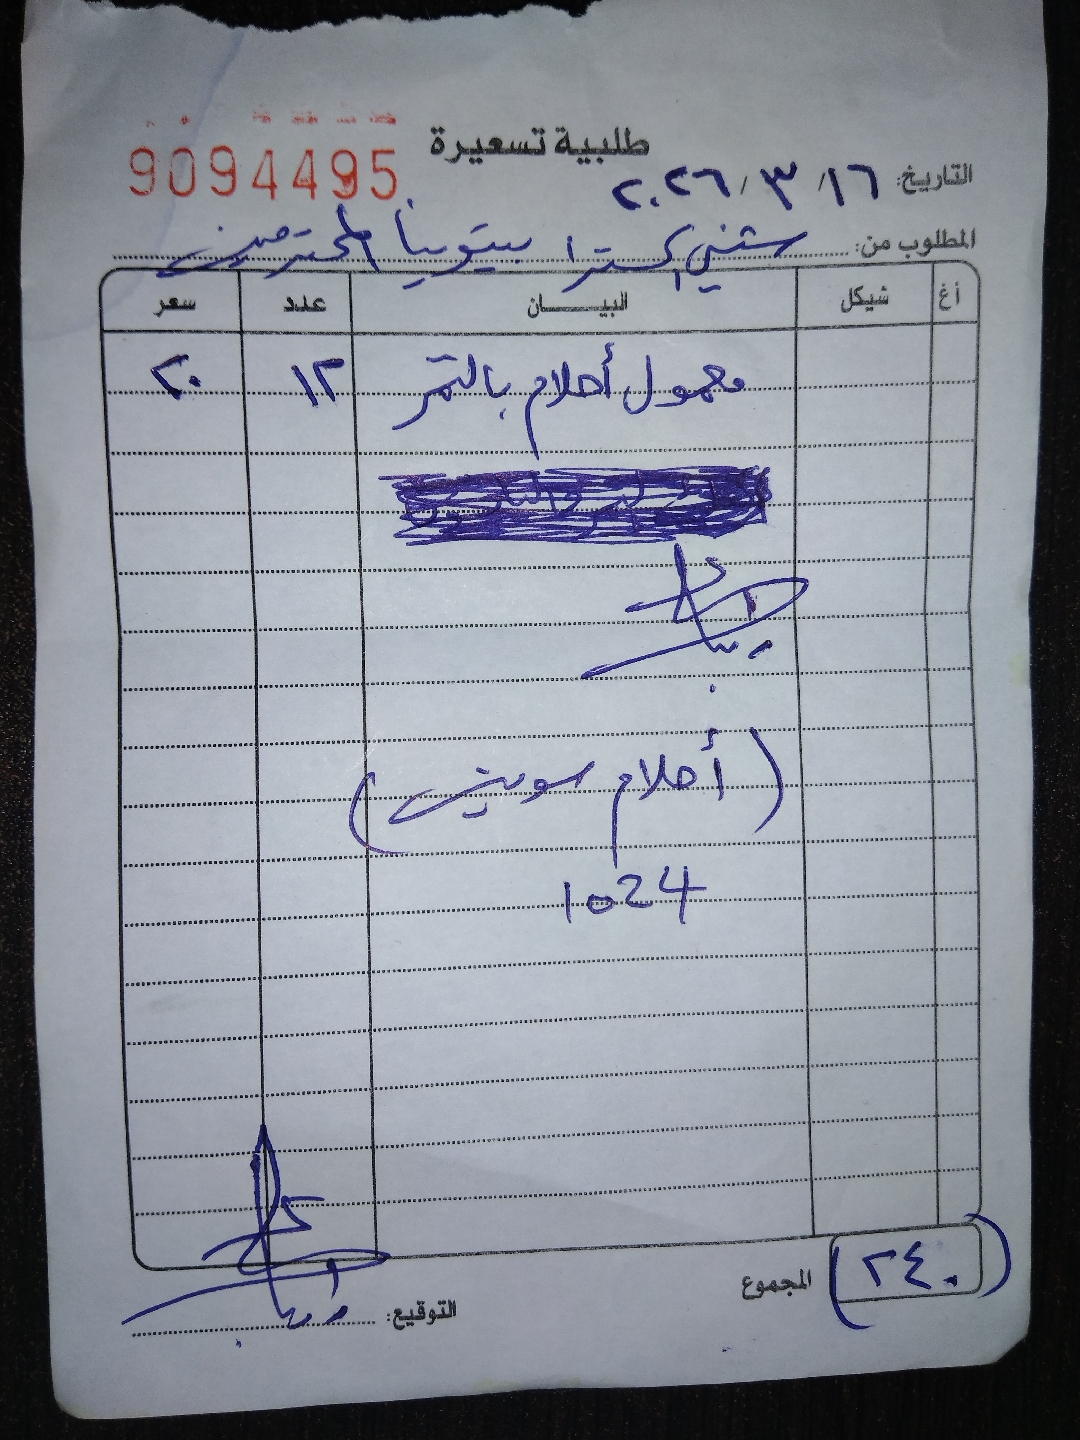 طلبية تسعيرة
9094495
التاريخ: ١٦ / ٣ / ٢٠٢٦
المطلوب من: ستني اكسترا بيتونيا المحترمين
أغ شيكل البيـــــــان عدد سعر
معمول أحلام بالتمر ١٢ ٢٠
(أحلام سويتس)
1024
المجموع (٢٤٠)
التوقيع: